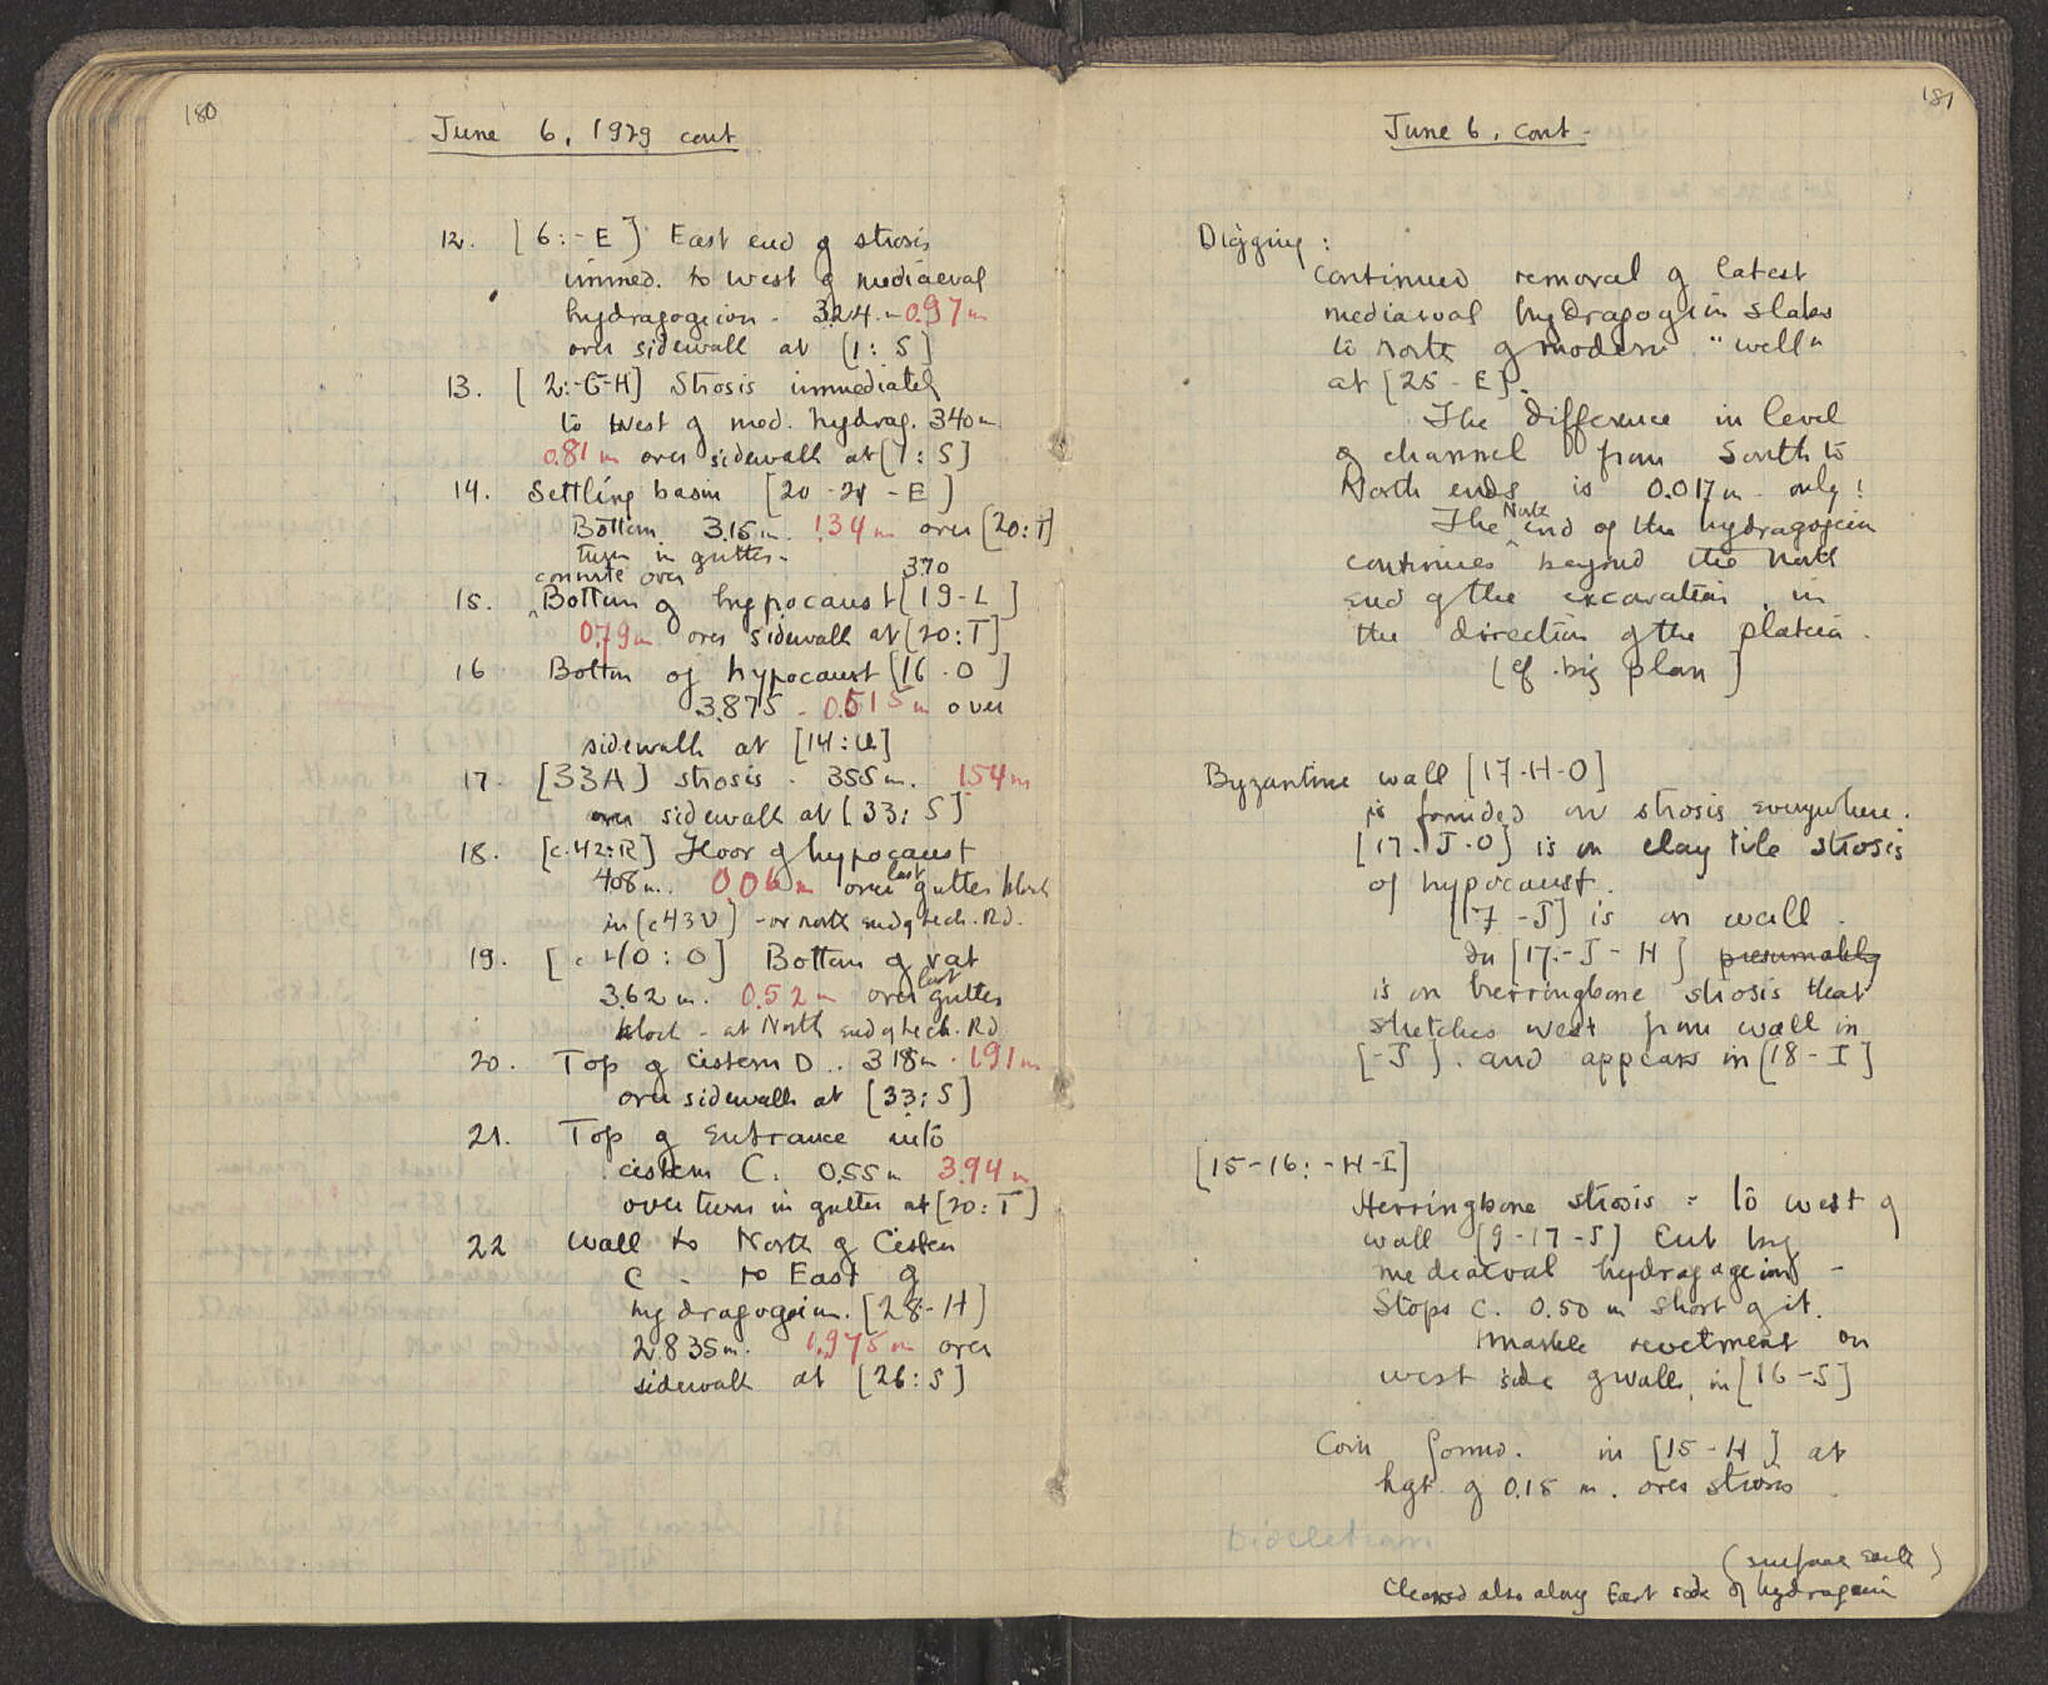 180
June 6, 1929 cont
12. [6:-E] East end of strosis
immed. to west of mediaeval
hydragogeion - 3.24 m 0.97 m
over sidewalk at [1:S]
13. [2:-G-H] Strosis immediately
to west of med. hydrag. 3.40 m
0.81 m over sidewalk at [1:S]
14. Settling basin [20-21-E]
Bottom 3.15 m. 1.34 m over [20:T]
turn in gutter -
concrete over 3.70
15. ^Bottom of hypocaust [19-L]
0.79 m over sidewalk at [20:T]
16 Bottom of hypocaust [16.O]
3.875 - 0.515 m over
sidewalk at [14:U]
17. [33A] strosis - 3.55 m. 1.54 m
over sidewalk at [33:S]
18. [c.42:R] Floor of hypocaust
4.08 m. 0.06 m over last gutter block
in [c43V] - or north end of Lech. Rd.
19. [c 40:O] Bottom of vat
3.62 m. 0.52 m over last gutter
block - at North end of Lech. Rd
20. Top of cistern D.. 3.18 m. 1.91 m
over sidewalk at [33:S]
21. Top of entrance into
cistern C. 0.55 m 3.94 m
over turn in gutter at [20:T]
22 Wall to North of Cistern
C - to East of
hydragogeion. [28-H]
2.835 m. 1.975 m over
sidewalk at [26:S]
181
June 6, cont -
Digging:
continued removal of latest
mediaeval hydragogeion slabs
to north of modern "well"
at [25-E].
The difference in level
of channel from South to
North ends is 0.017 m. only!
The ^North end of the hydragogeion
continues beyond the north
end of the excavation, in
the direction of the plateia.
[cf. big plan]
Byzantine wall [17-H-O]
is founded on strosis everywhere.
[17.J.O] is on clay tile strosis
of hypocaust.
[17-J] is on wall.
In [17:-J-H] presumably
is on herringbone strosis that
stretches west from wall in
[-J]. and appears in [18-I]
[15-16:-H-I]
Herringbone strosis = to west of
wall [9-17-J] Cut by
mediaeval hydragogeion -
Stops c. 0.50 m short of it.
Marble revetment on
west side of wall, in [16-J]
Coin found. in [15-H] at
hgt. of 0.15 m. over strosis
Diocletian
(surface earth)
Cleared also along East side of hydragogeion